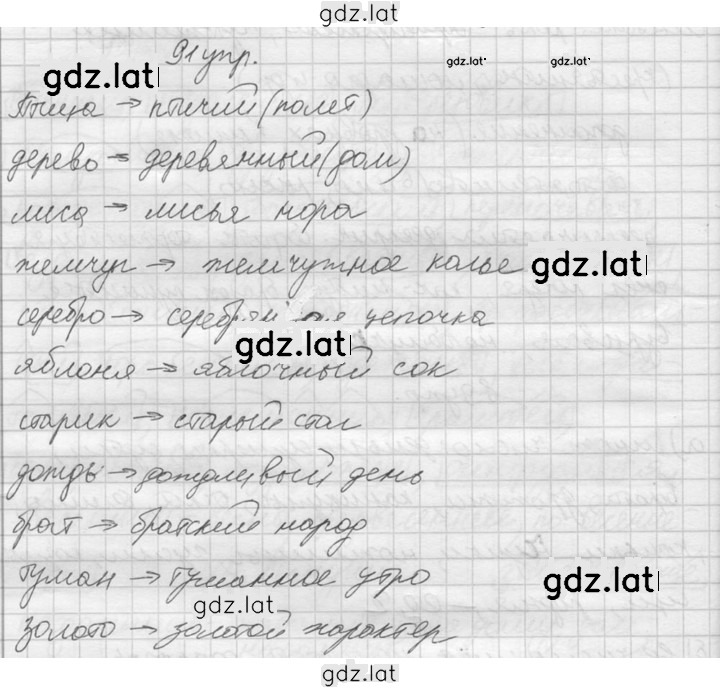 gdz.lat
91 упр.
gdz.lat
gdz.lat
gdz.lat
Птица → птичий (полет)
дерево → деревянный (дом)
лиса → лисья нора
жемчуг → жемчужное колье
gdz.lat
серебро → цепочка
gdz.lat
яблоня → яблочный сок
старик → старый стал
дождь → дождливый день
брат → братский народ
туман → туманное утро
gdz.lat
gdz.lat
золото → золотой характер
gdz.lat